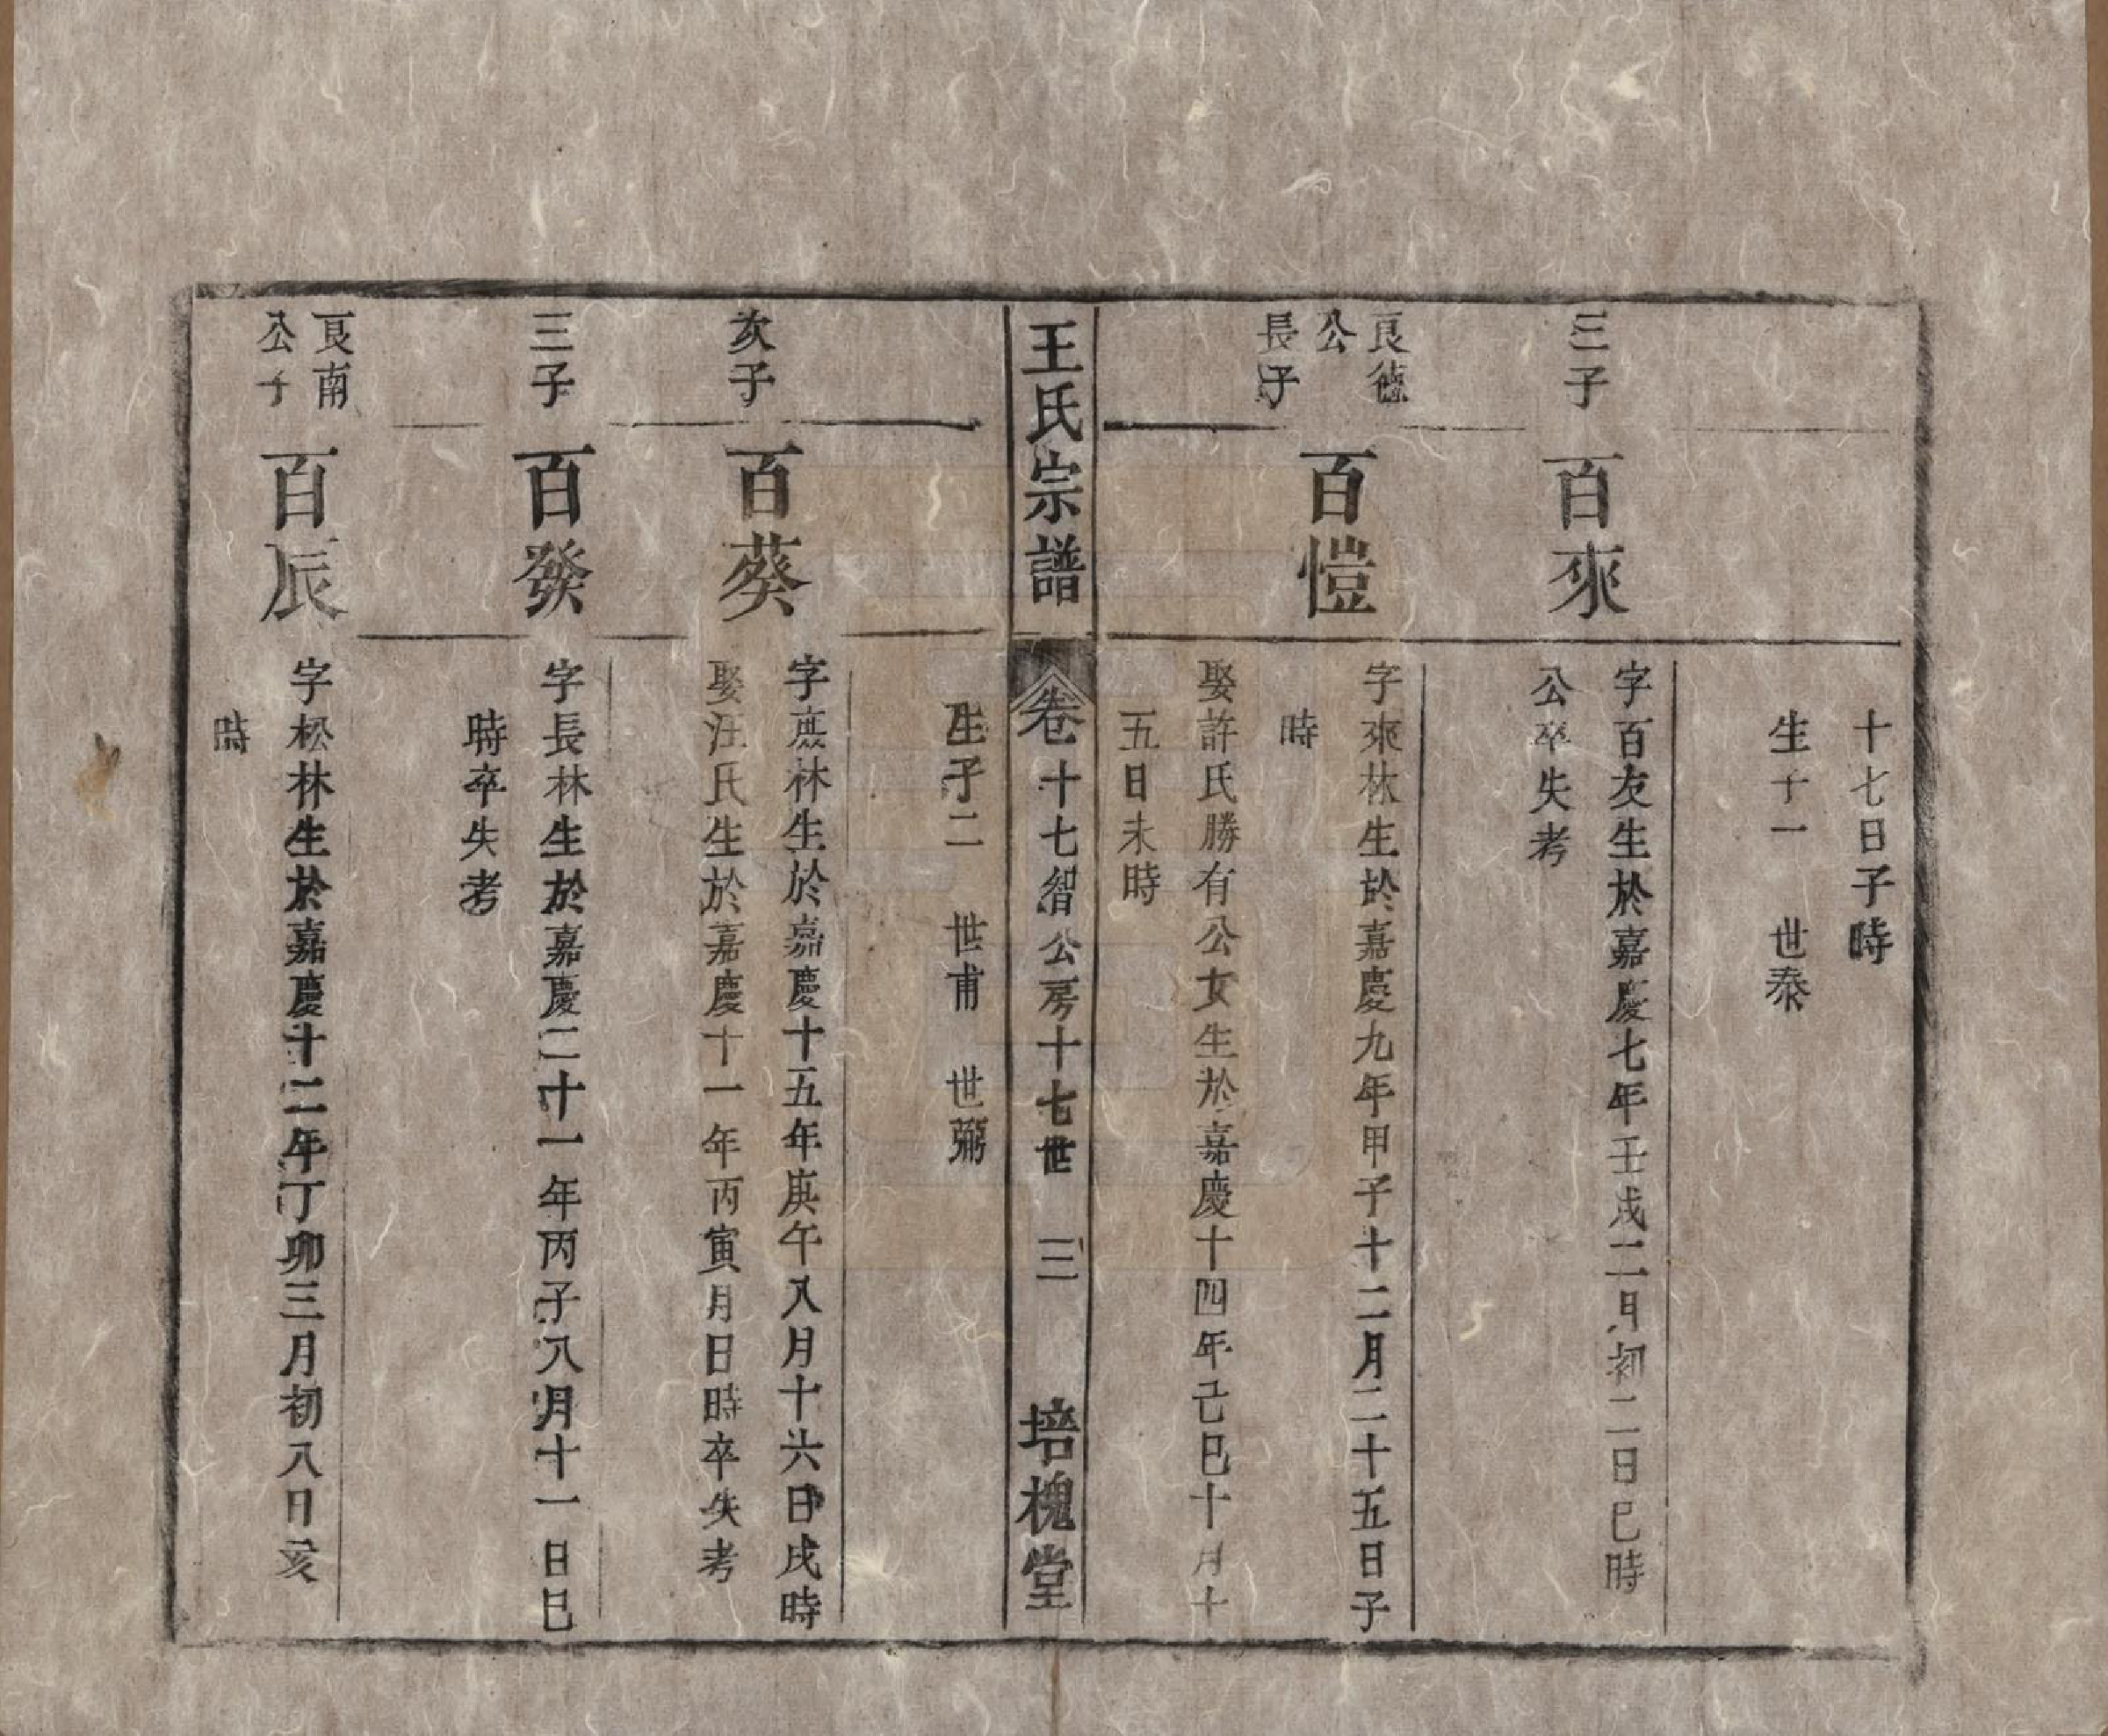 十七日子時
生子一　世泰
三子
百來
字百友生於嘉慶七年壬戌二月初二日巳時
公卒失考
良德
公
長子
百愷
字來林生於嘉慶九年甲子十二月二十五日子
時
娶許氏勝有公女生於嘉慶十四年己巳十月十
五日未時
王氏宗譜
卷十七智公房十七世　三
培槐堂
生子二　世甫　世彌
次子
百葵
字庶林生於嘉慶十五年庚午八月十六日戌時
娶汪氏生於嘉慶十一年丙寅月日時卒失考
三子
百發
字長林生於嘉慶二十一年丙子八月十一日巳
時卒失考
良南
公子
百辰
字松林生於嘉慶十二年丁卯三月初八日亥
時